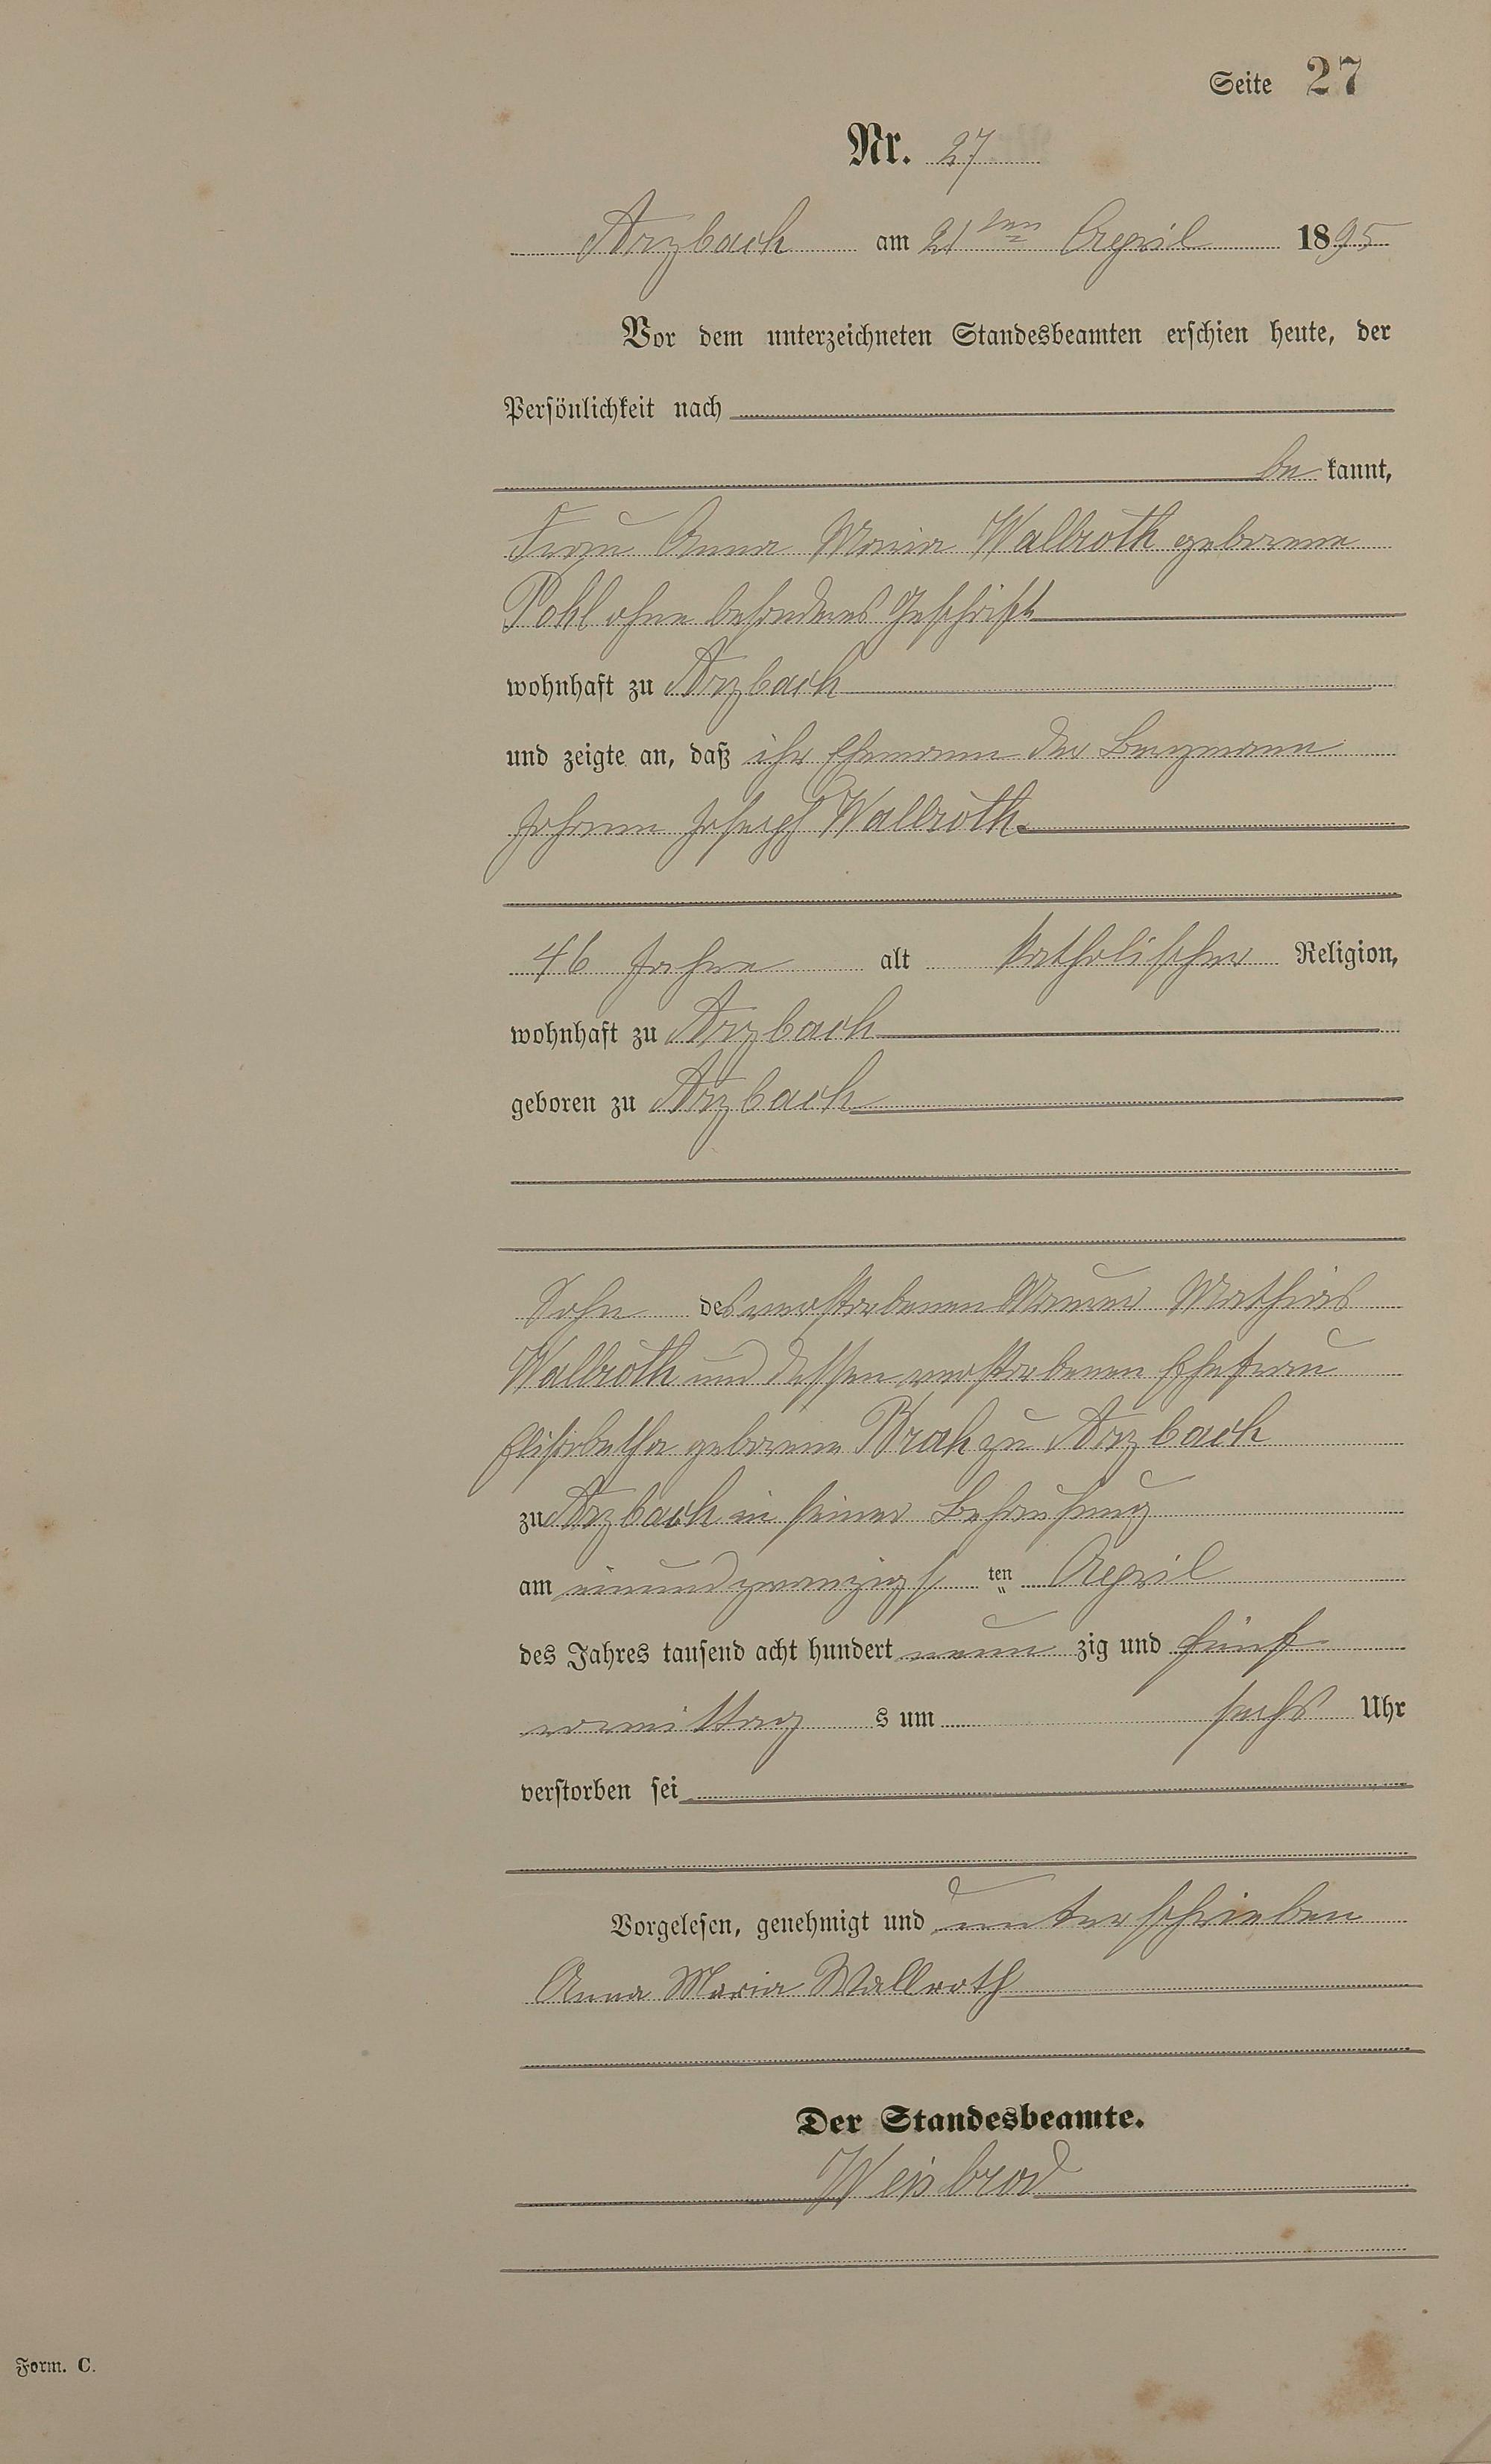 Seite 27
Nr. 27
Arzbach am 21ten April 1895
Vor dem unterzeichneten Standesbeamten erschien heute, der
Persönlichkeit nach
be kannt,
Frau Anna Maria Wallroth geborene
Pohl ohne besonderes Geschäft
wohnhaft zu Arzbach
und zeigte an, daß ihr Ehemann der Bergmann
Johann Joseph Wallroth.
46 Jahre alt katholischer Religion,
wohnhaft zu Arzbach
geboren zu Arzbach
Sohn des verstorbenen Maurer Mathias
Wallroth und dessen verstorbenen Ehefrau
Elisabetha geborene Brah zu Arzbach
zu Arzbach in seiner Behausung
am einundzwanzigs ten April
des Jahres tausend acht hundert neun zig und fünf
vormittag s um sechs Uhr
verstorben sei
Vorgelesen, genehmigt und unterschrieben
Anna Maria Wallroth
Der Standesbeamte.
Weisbrod
Form. C.